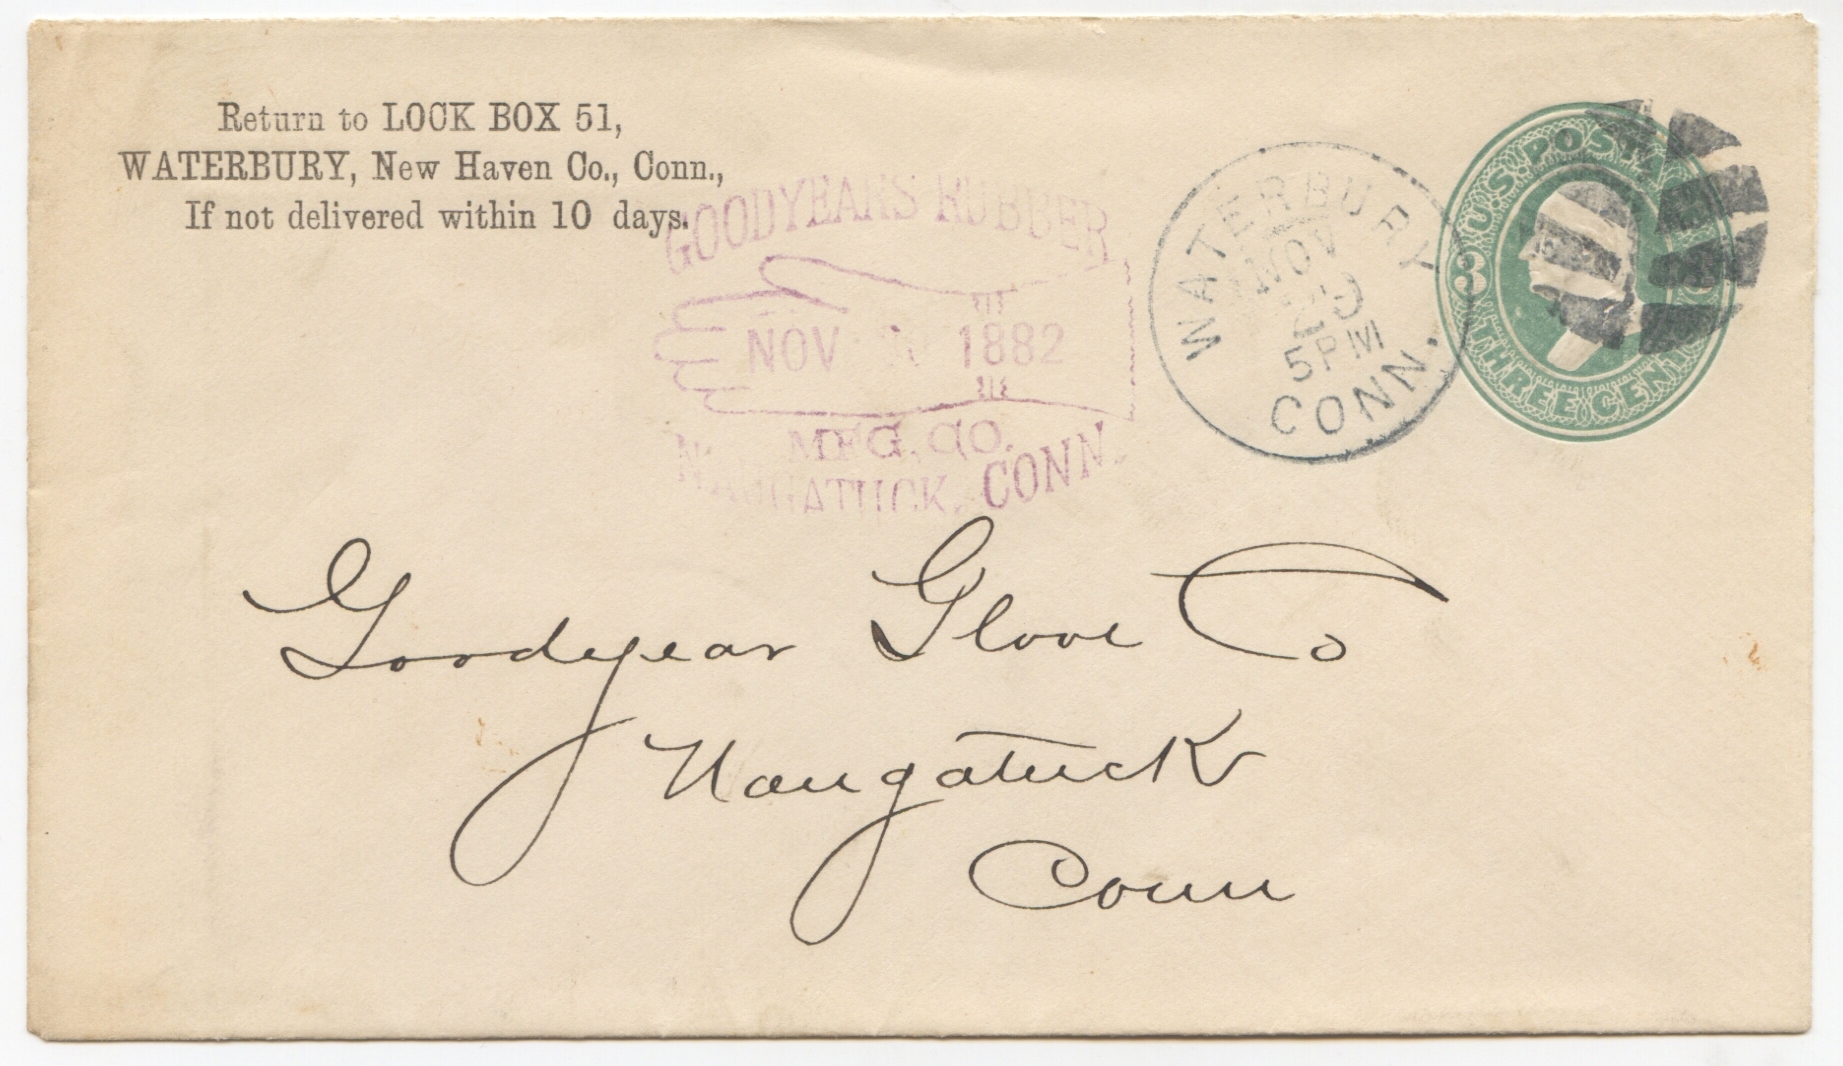 Return to LOCK BOX 51,
WATERBURY, New Haven Co., Conn.,
If not delivered within 10 days.
GOODYEARS RUBBER
NOV 1882
MFG. CO.
NAUGATUCK, CONN.
WATERBURY
NOV
5 PM
CONN.
U.S. POSTAGE
3
THREE CENTS
Goodyear Glove Co
Naugatuck
Conn